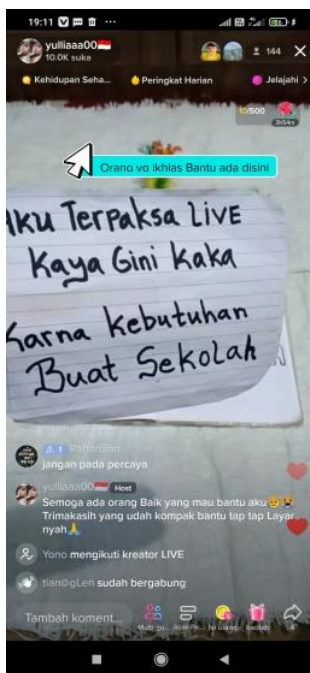 19:11
yulliaaa00
10.0K suka
144
Kehidupan Seha...
Peringkat Harian
Jelajahi >
10/500
Orang yg ikhlas Bantu ada disini
Aku Terpaksa LIVE
Kaya Gini Kaka
Karna Kebutuhan
Buat Sekolah
jangan pada percaya
yulliaaa00 Host
Semoga ada orang Baik yang mau bantu aku
Trimakasih yang udah kompak bantu tap tap Layar
nyah
Yono mengikuti kreator LIVE
tian@gLen sudah bergabung
Tambah koment...
4